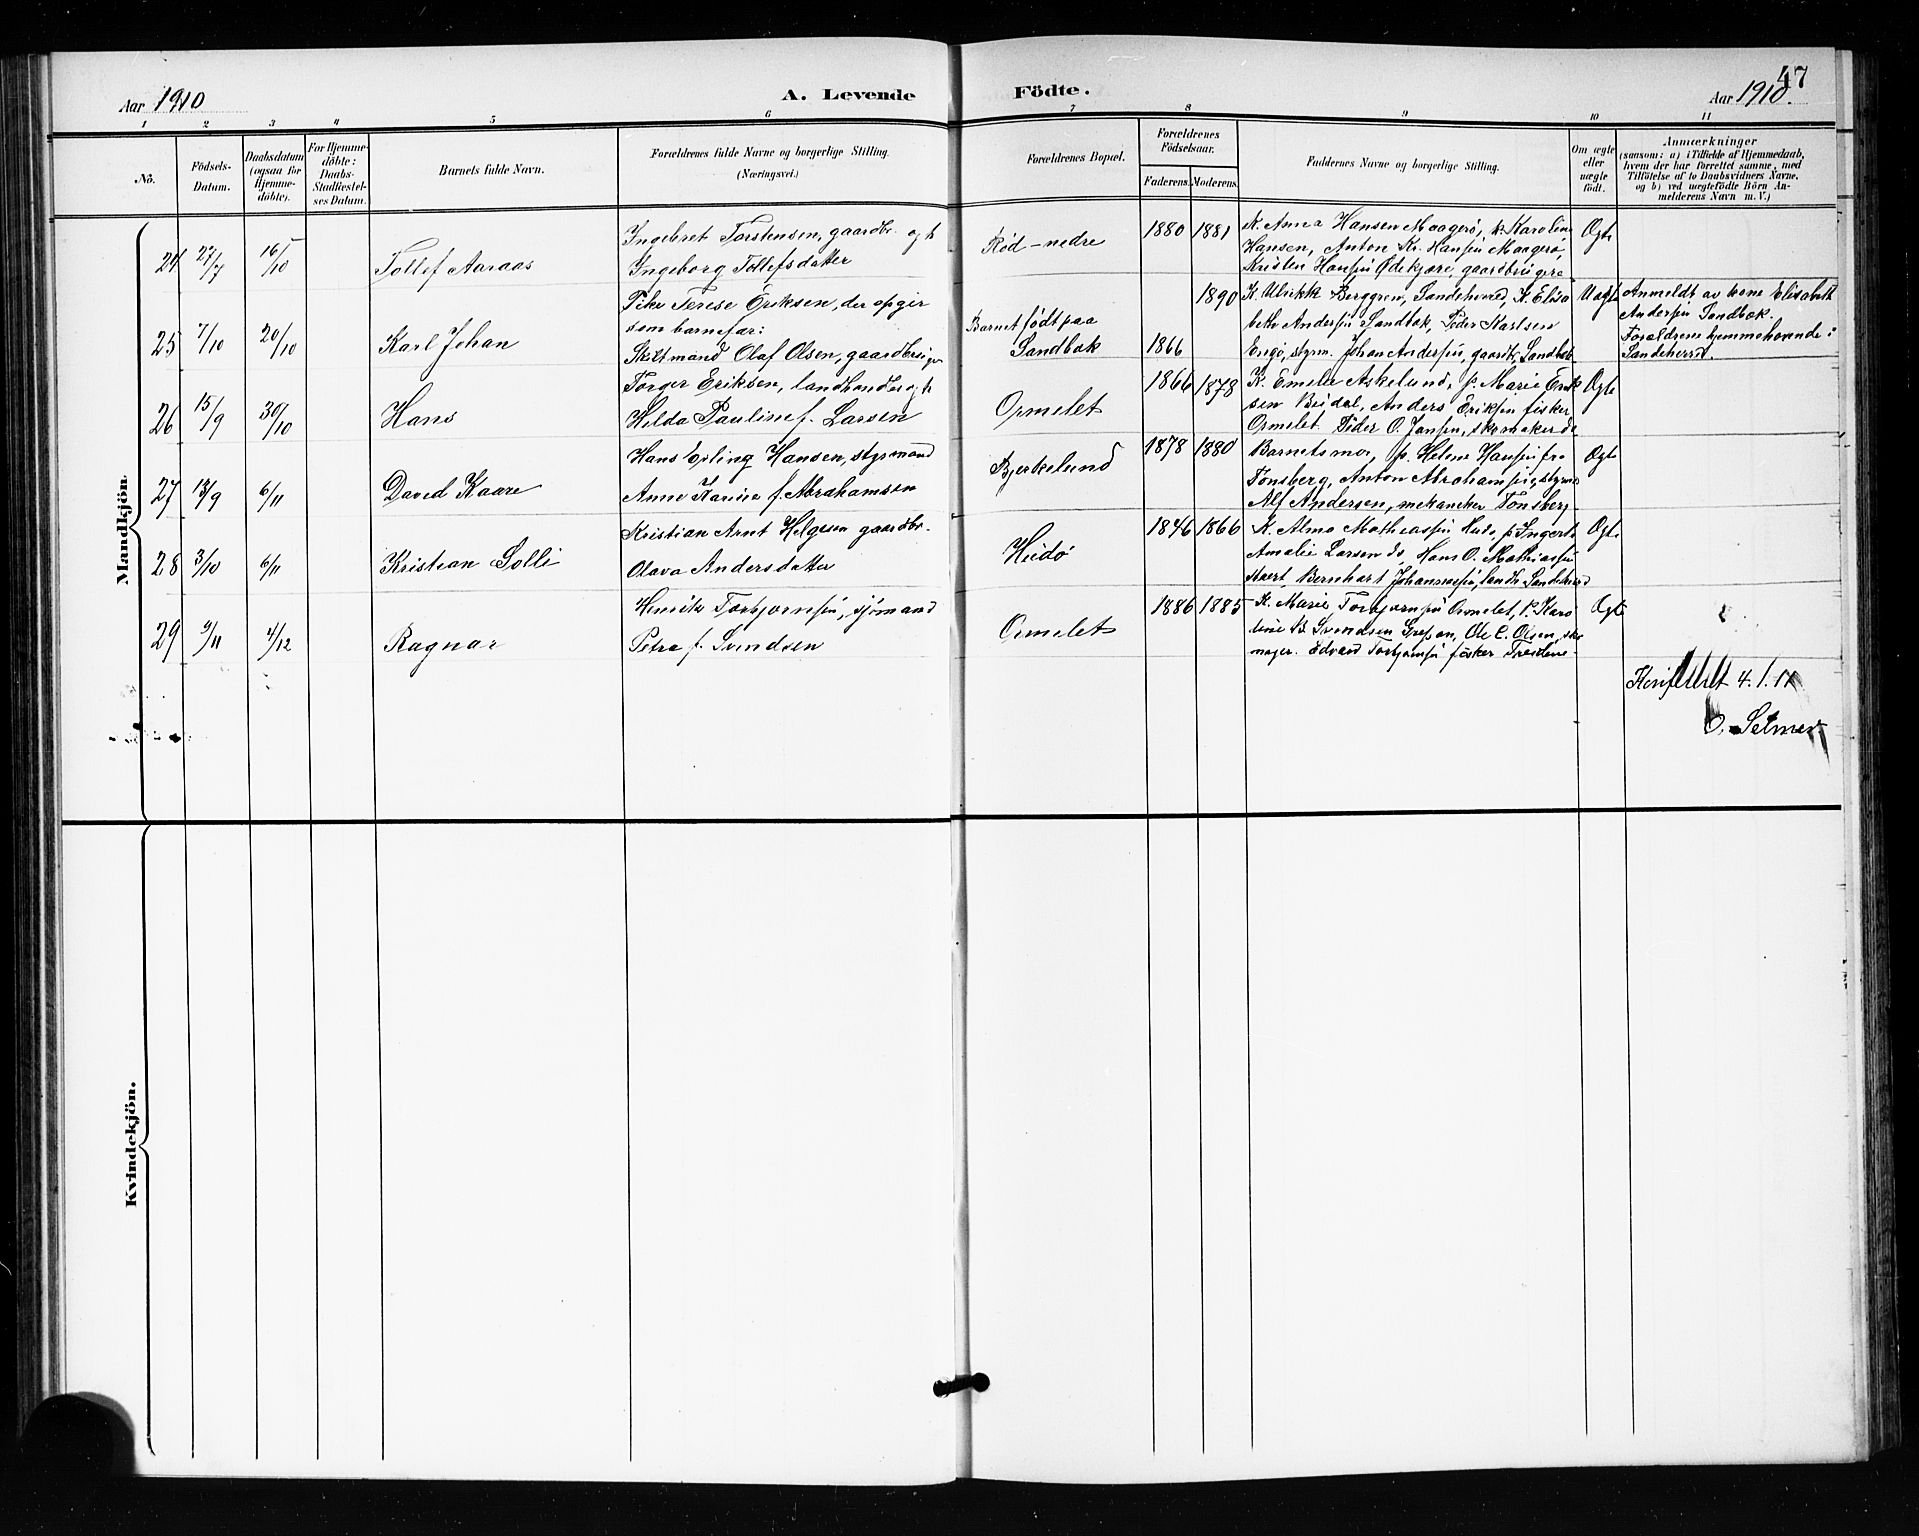 Aar 1910
A. Levende
Födte.
Aar 1910.
47
1 2 3 4 5 6 7 8 9 10 11
No.
Födsels-
Datum.
Daabsdatum
(ogsaa for
Hjemme-
döbte).
For Hjemme-
döbte:
Daabs-
Stadfæstel-
ses Datum.
Barnets fulde Navn.
Forældrenes fulde Navne og borgerlige Stilling.
(Næringsvei.)
Forældrenes Bopæl.
Forældrenes
Födselsaar.
Faderens. Moderens.
Faddernes Navne og borgerlige Stilling.
Om ægte
eller
uægte
födt.
Anmærkninger
(saasom: a) i Tilfælde af Hjemmedaab,
hvem der har forrettet samme, med
Tilföielse af to Daabsvidners Navne,
og b) ved uægtefödte Börn An-
melderens Navn m. V.)
Mandkjön.
24 27/7 16/10 Tollef Aaraas
Ingebret Torstensen, gaardbr. og h
Ingeborg Tollefsdatter
Rød-nedre
1880 1881
K. Anna Hansen Maagerø, p. Karoline
Hansen, Anton Kr. Hansen Maagerø,
Kristen Hansen Ødekjære, gaardbrugere
Ægte
25 7/10 20/10 Karl Johan
Pike Terese Eriksen, der opgir
som barnefar:
Skiltmand Olaf Olsen, gaardbruger
Barnet født paa
Sandbæk
1890
1866
K. Ulrikke Berggren, Sandeherred, K. Elisa
beth Andersen Sandbæk, Peder Karlsen
Engø, styrm. Johan Andersen, gaardbr. Sandbæk
Uægte
Anmeldt av kone Elisabeth
Andersen Sandbæk.
Forældrene hjemmehørende i
Sandeherred.
26 15/9 30/10 Hans
Torger Eriksen, landhandler og h
Hilda Pauline f. Larsen
Ormelet
1866 1878
K. Emelie Askelund, p. Marie Erik
sen Budal, Anders Eriksen fisker
Ormelet. Peder O. Jansen, skomaker do
Ægte
27 13/9 6/11 David Kaare
Hans Erling Hansen, styrmand
Anne Karine f. Abrahamsen
Bjerkelund
1878 1880
Barnets mor, p. Helene Hansen fra
Tønsberg, Anton Abrahamsen styrm
Alf Andersen, mekaneker Tønsberg
Ægte
28 3/10 6/11 Kristian Solli
Kristian Arnt Helgesen gaardbr.
Olava Andersdatter
Hudø
1846 1866
K. Alma Mathiassen Hudø, p. Ingerta
Amalie Larsen do, Hans O. Mathiassen
Bernhart Johannesen, landh. Sandeherred
Ægte
29 9/11 4/12 Ragnar
Henrik Torbjørnsen, sjømand
Petra f. Svendsen
Ormelet
1886 1885
K. Marie Torbjørnsen Ormelet, P. Karo
line B Svendsen Grepan, Ole C. Olsen, sko
mager. Edvard Torbjørnsen fisker
Ægte
Konfereret 4.1.11
O. Selmer
Kvindekjön.